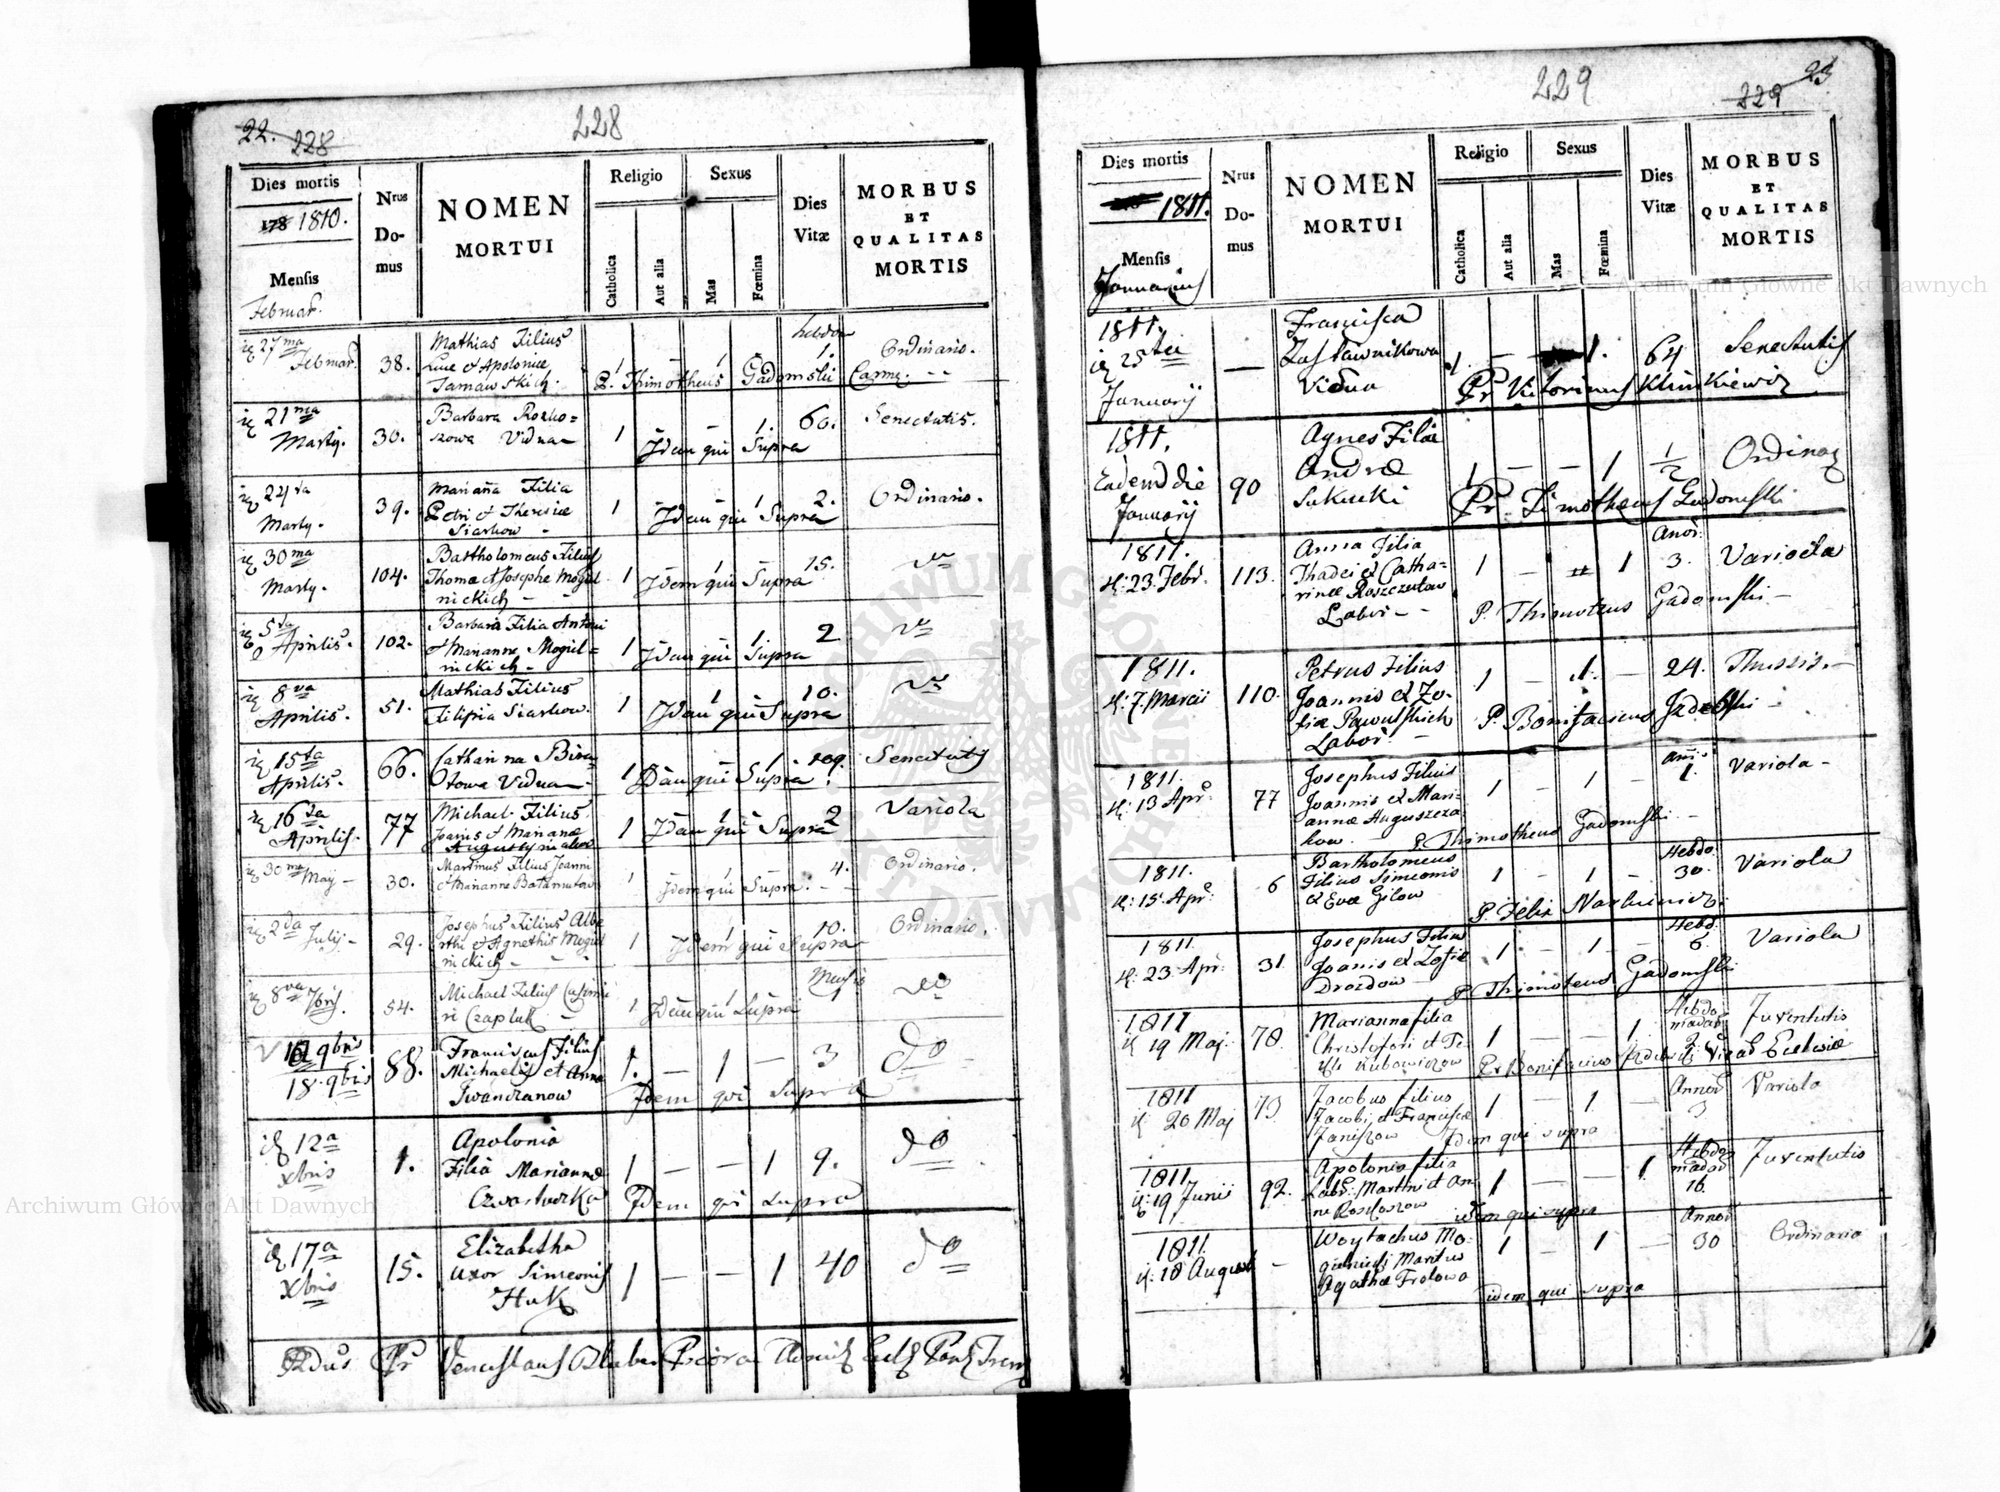 22. 228
228
Dies mortis
178 1810.
Mensis
Februar.
Nrus
Do-
mus
NOMEN
MORTUI
Religio
Catholica
Aut alia
Sexus
Mas
Fœmina
Dies
Vitæ
MORBUS
ET
QUALITAS
MORTIS
27 ma
Februar.
38.
Mathias Filius
Lucæ et Apoloniæ
Tarnawskich.
1 — 1
P. Thimotheus Gadomski
1.
Ordinario.
21 ma
Martij.
30.
Barbara
Vidua
1 1. 60.
Idem qui Supra
Senectutis.
24 ta
Martij.
39.
Marianna Filia
Petri et Theresiæ
Siarkow
1 1 2.
Idem qui Supra
Ordinario.
30 ma
Martij.
104.
Bartholomeus Filius
Thomæ et Josephæ Mogiel
nickich
1 1 15.
Idem qui Supra
5 ta
Aprilis.
102.
Barbara Filia Antoni
et Mariannæ Mogiel=
nickich
1 1 2
Idem qui Supra
8 va
Aprilis.
51.
Mathias Filius
Siarkow.
1 1 10.
Idem qui Supra
15 ta
Aprilis.
66.
Catharina
Vidua
1 1 109.
Idem qui Supra
Senectutis
16 ta
Aprilis.
77
Michael Filius
Joannis et Mariannæ
1 1 2
Idem qui Supra
Variola
30 ma May
30.
Martinus Filius Joanni
et Mariannæ
1 1 4.
Idem qui Supra.
Ordinario.
2 da Julij
29.
Josephus Filius Albe
rthi et Agnethis Mogiel
nickich
1 1 10.
Idem qui Supra
Ordinario.
8 va
54.
Michael Filius Casimi
ri Czapluk
1 1
Idem qui Supra
do
18. 9bris
88.
Franciscus Filius
Michaelis et Anna
Iwanczanow
1. — 1 — 3
Idem qui Supra
do
12 a
xbris
1.
Apolonia
Filia Mariannæ
1 — — 1 9.
Idem qui Supra
do
17 a
xbris
15.
Elizabetha
uxor Simeonis
Huk
1 — — 1 40
do
23
229
229
Dies mortis
1811.
Mensis
Januarius
Nrus
Do-
mus
NOMEN
MORTUI
Religio
Catholica
Aut alia
Sexus
Mas
Fœmina
Dies
Vitæ
MORBUS
ET
QUALITAS
MORTIS
1811.
Januarij
—
Francisca
Zasławnikowa
Vidua
1 — 1. 64
Senectutis
Pr Victorinus Klimkiewicz
1811.
Eadem die
Januarij
90
Agnes Filia
Andreæ
Sukucki
1 — — 1 1/2
Pr. Timotheus Gadomski
1811.
23. Febr.
113.
Anna Filia
Thadei et Catha=
rinæ Roszczutow
Labor
1 — 1 3.
Variola
P. Thimoteus Gadomski
1811.
7. Marcii
110.
Petrus Filius
Joannis et Zo-
fiæ Pawulskich
Labor.
1 — 1. — 24.
Thussis.
P. Bonifacius
1811.
13 Apr.
77
Josephus Filius
Joannis et Mari-
annæ Auguszcza
kow.
1 — 1 — 1.
Variola
P. Thimotheus Gadomski
1811.
15. Apr.
6
Bartholomeus
Filius Simeonis
et Evæ Gilow
1 — 1 —
Hebdo.
30.
Variola
P. Felix
1811.
23. Apr.
31
Josephus Filius
Joanis et Zofiæ
Drozdow
1 — 1 —
Hebd.
6.
Variola
P. Thimoteus Gadomski
1811
19 Maj.
78.
Marianna filia
Christofori et
Kubowiczow
1 — — 1.
Juventutis
Pr Bonifacius
1811
20 Maj
73
Jacobus filius
Jacobi et Franciscæ
Janiszow
1 — 1 —
3
Variola
Idem qui supra
1811.
19 Junii
92.
Apolonia filia
Labr: Martini et An
næ Roszkoszow
1 — — 1
16.
Juventutis
idem qui supra
1811.
18 August
-
Woytachus Mo-
gielnicki Maritus
Agathæ Frolowa
1 — 1 —
30
Ordinaria
idem qui supra
Archiwum Główne Akt Dawnych
Archiwum Główne Akt Dawnych
ARCHIWUM GŁÓWNE AKT DAWNYCH